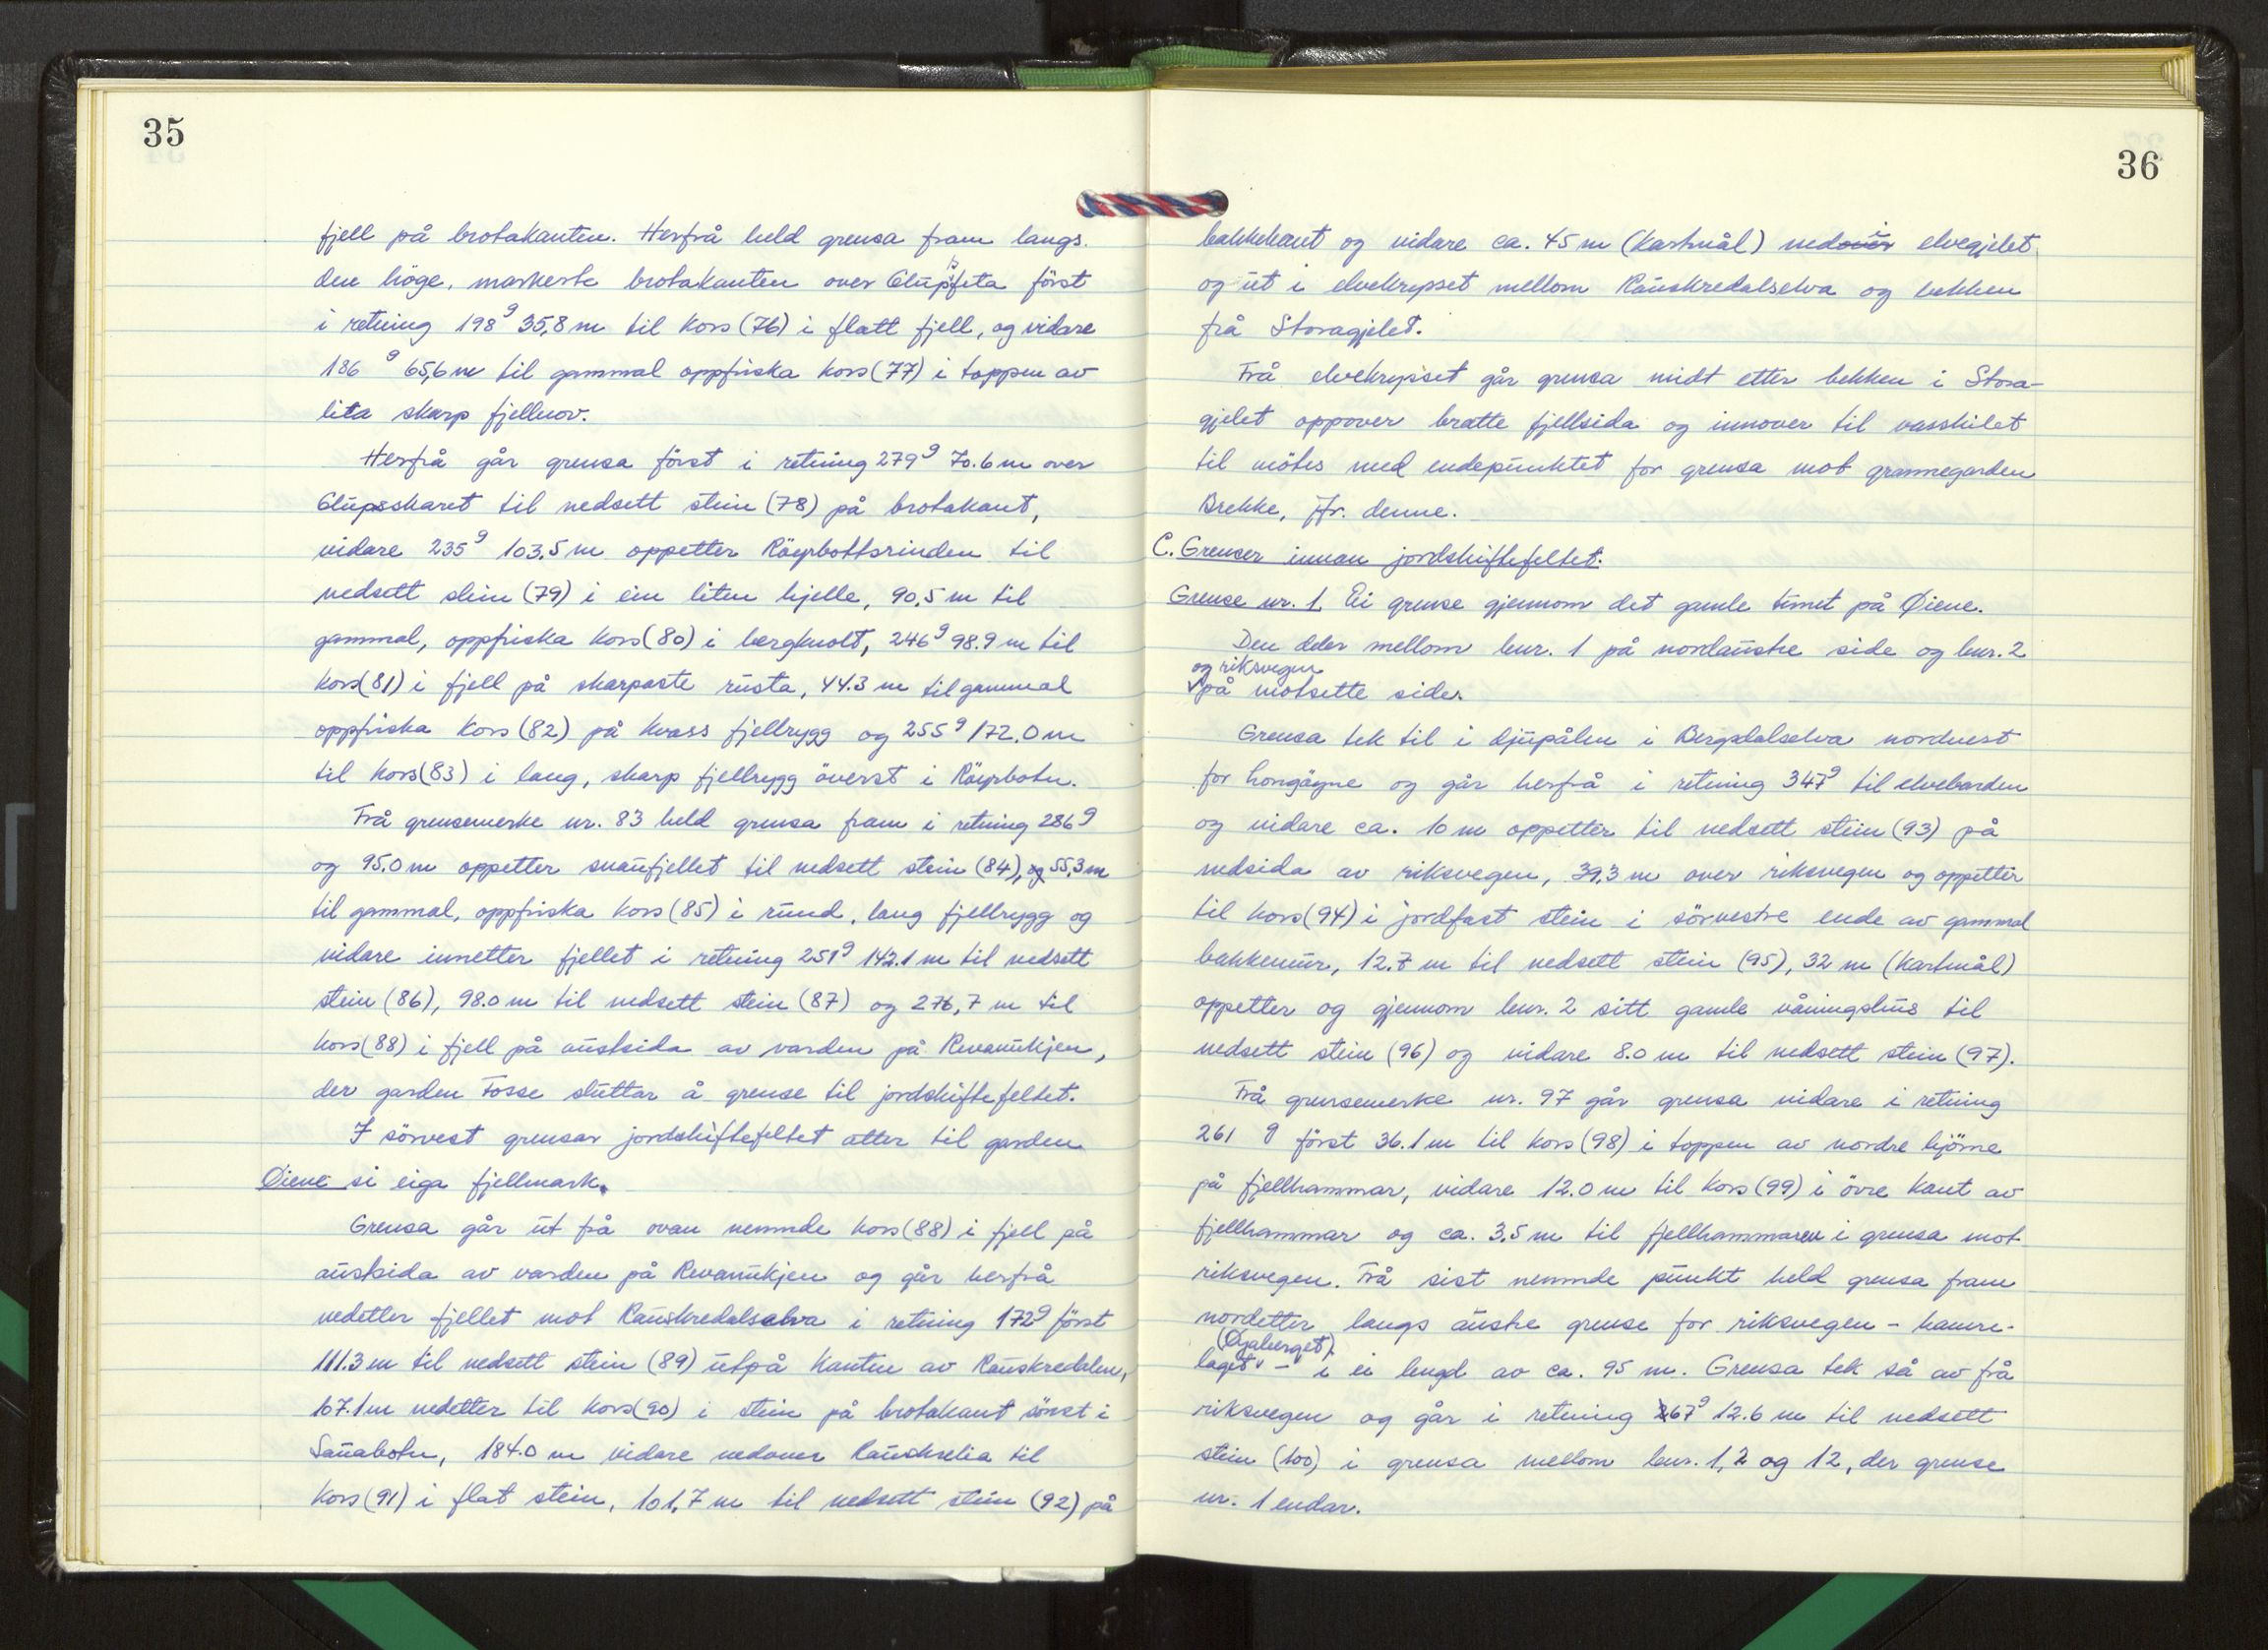 35
fjell på brotakanten. Herfrå held grensa fram langs
den höge, markerte brotakanten over Glupsfeta först
i retning 198g 35,8 m til kors (76) i flatt fjell, og vidare
186 g 65,6 m til gammal oppfriska kors (77) i toppen av
lita skarp fjellnov.
Herfrå går grensa först i retning 279g 70.6 m over
Glupsskaret til nedsett stein (78) på brotakant,
vidare 235g 103.5 m oppetter Röyrbottsrinden til
nedsett stein (79) i ein liten hjelle, 90.5 m til
gammal, oppfriska kors (80) i bergknolt, 246g 98.9 m til
kors (81) i fjell på skarpaste rusta, 44.3 m til gammal
oppfriska kors (82) på kvass fjellrygg og 255g 172.0 m
til kors (83) i lang, skarp fjellrygg överst i Röyrbotn.
Frå grensemerke nr. 83 held grensa fram i retning 286g
og 95.0 m oppetter snaufjellet til nedsett stein (84), og 55.3 m
til gammal, oppfriska kors (85) i rund, lang fjellrygg og
vidare innetter fjellet i retning 251g 142.1 m til nedsett
stein (86), 98.0 m til nedsett stein (87) og 276,7 m til
kors (88) i fjell på austsida av varden på Revanukjen,
der garden Fosse sluttar å grense til jordskiftefeltet.
I sörvest grensar jordskiftefeltet atter til garden
Øiene si eiga fjellmark.
Grensa går ut frå ovan nemnde kors (88) i fjell på
austsida av varden på Revanukjen og går herfrå
nedetter fjellet mot Rauskredalselva i retning 172g först
111.3 m til nedsett stein (89) utpå kanten av Rauskredalen,
107.1 m nedetter til kors (90) i stein på brotakant sörst i
Sauabotn, 184.0 m vidare nedover Rauskrelia til
kors (91) i flat stein, 101,7 m til nedsett stein (92) på
36
bakkekant og vidare ca. 45 m (kartmål) ned i elvegjelet
og ut i elvekrysset mellom Rauskredalselva og bekken
frå Storagjelet.
Frå elvekrysset går grensa midt etter bekken i Stora-
gjelet oppover bratte fjellsida og innover til vasskilet
til mötes med endepunktet for grensa mot grannegarden
Brekke, jfr. denne.
C. Grenser innan jordskiftefeltet.
Grense nr. 1 Ei grense gjennom det gamle tunet på Øiene.
Den deler mellom bnr. 1 på nordaustre side og bnr. 2
og riksvegen
på motsette sider.
Grensa tek til i djupålen i Bergsdalselva nordvest
for Longöyne og går herfrå i retning 347g til elvebarden
og vidare ca. 10 m oppetter til nedsett stein (93) på
nedsida av riksvegen, 39.3 m over riksvegen og oppetter
til kors (94) i jordfast stein i sörvestre ende av gammal
bakkemur, 12.7 m til nedsett stein (95), 32 m (kartmål)
oppetter og gjennom bnr. 2 sitt gamle våningshus til
nedsett stein (96) og vidare 8.0 m til nedsett stein (97).
Frå grensemerke nr. 97 går grensa vidare i retning
261 g först 36.1 m til kors (98) i toppen av nordre hjörne
på fjellhammar, vidare 12.0 m til kors (99) i övre kant av
fjellhammar og ca. 3.5 m til fjellhammaren i grensa mot
riksvegen. Frå sist nemnde punkt held grensa fram
nordetter langs austre grense for riksvegen - hamre-
(Øyaberget)
laget - i ei lengd av ca. 95 m. Grensa tek så av frå
riksvegen og går i retning 267g 12.6 m til nedsett
stein (100) i grensa mellom bnr. 1, 2 og 12, der grense
nr. 1 endar.